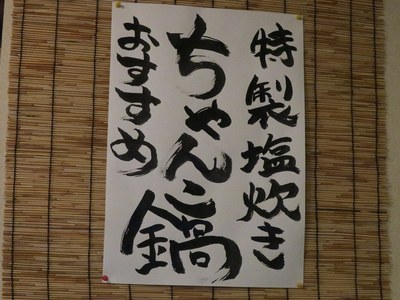 特製塩炊き
ちゃんこ鍋
おすすめ